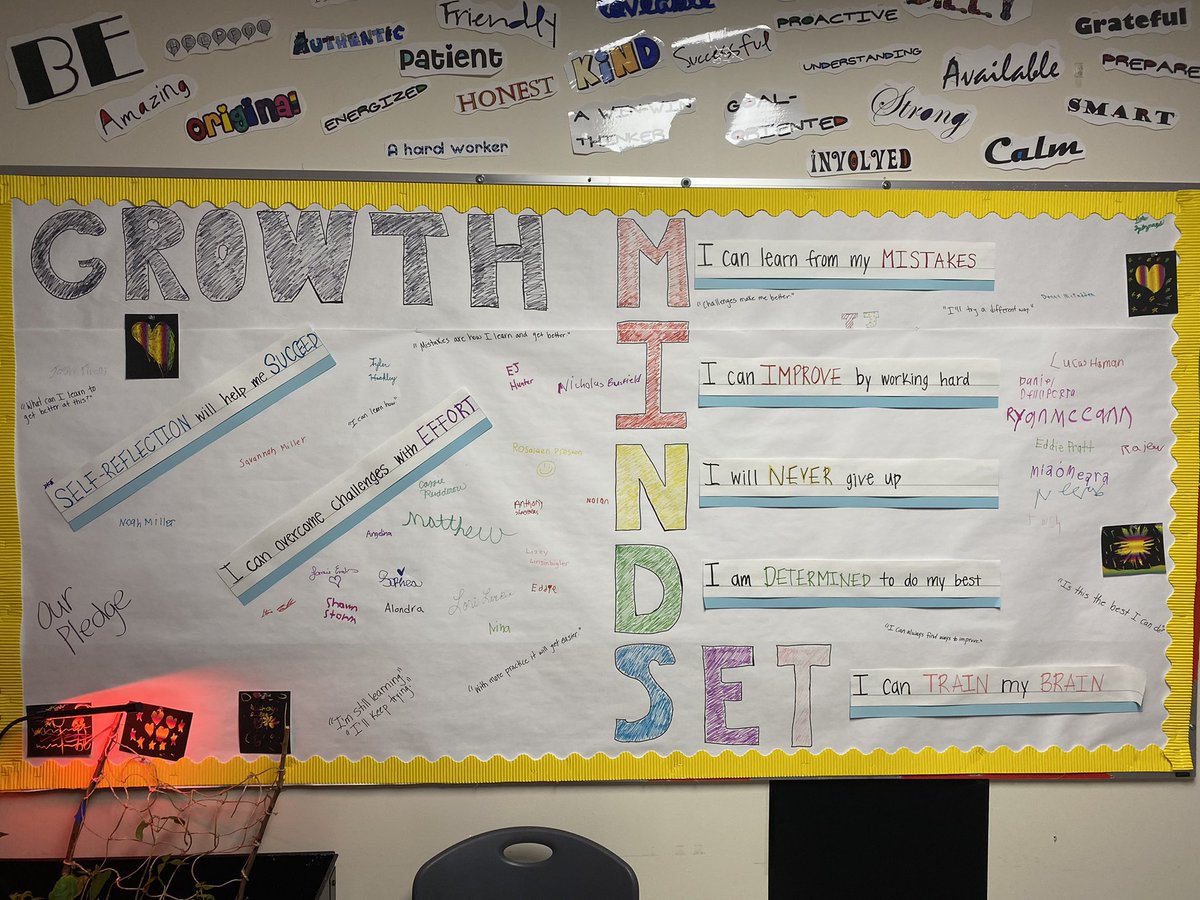 BE
HELPFUL
AUTHENTIC
Friendly
PROACTIVE
Grateful
Patient
KIND
Successful
UNDERSTANDING
Available
PREPARE
Amazing
Original
ENERGIZED
HONEST
A WIN-WIN
THINKER
GOAL-
ORIENTED
Strong
SMART
A hard worker
INVOLVED
Calm
GROWTH
MIND
SET
I can learn from my MISTAKES
"Challenges make me better"
"I'll try a different way."
TJ
"Mistakes are how I learn and get better"
SELF-REFLECTION will help me SUCCEED
"What can I learn to
get better at this?"
Tyler
Hackley
EJ
Hunter
Nicholas
I can IMPROVE by working hard
Lucas Haman
Daniel
Ryan mccann
Eddie Pratt
Rajeev
mia O'meara
"I can learn how"
I can overcome challenges with EFFORT
Savannah Miller
Rosaleen Preston
Cassie
Noah Miller
Matthew
Anthony
Nolan
Angelina
I will NEVER give up
Lizzy
Sophia
Eddie
Shawn
Storm
Alondra
Nina
I am DETERMINED to do my best
"Is this the best I can do?"
"I can always find ways to improve."
Our
Pledge
"With more practice it will get easier."
"I'm still learning"
"I'll keep trying"
I can TRAIN my BRAIN